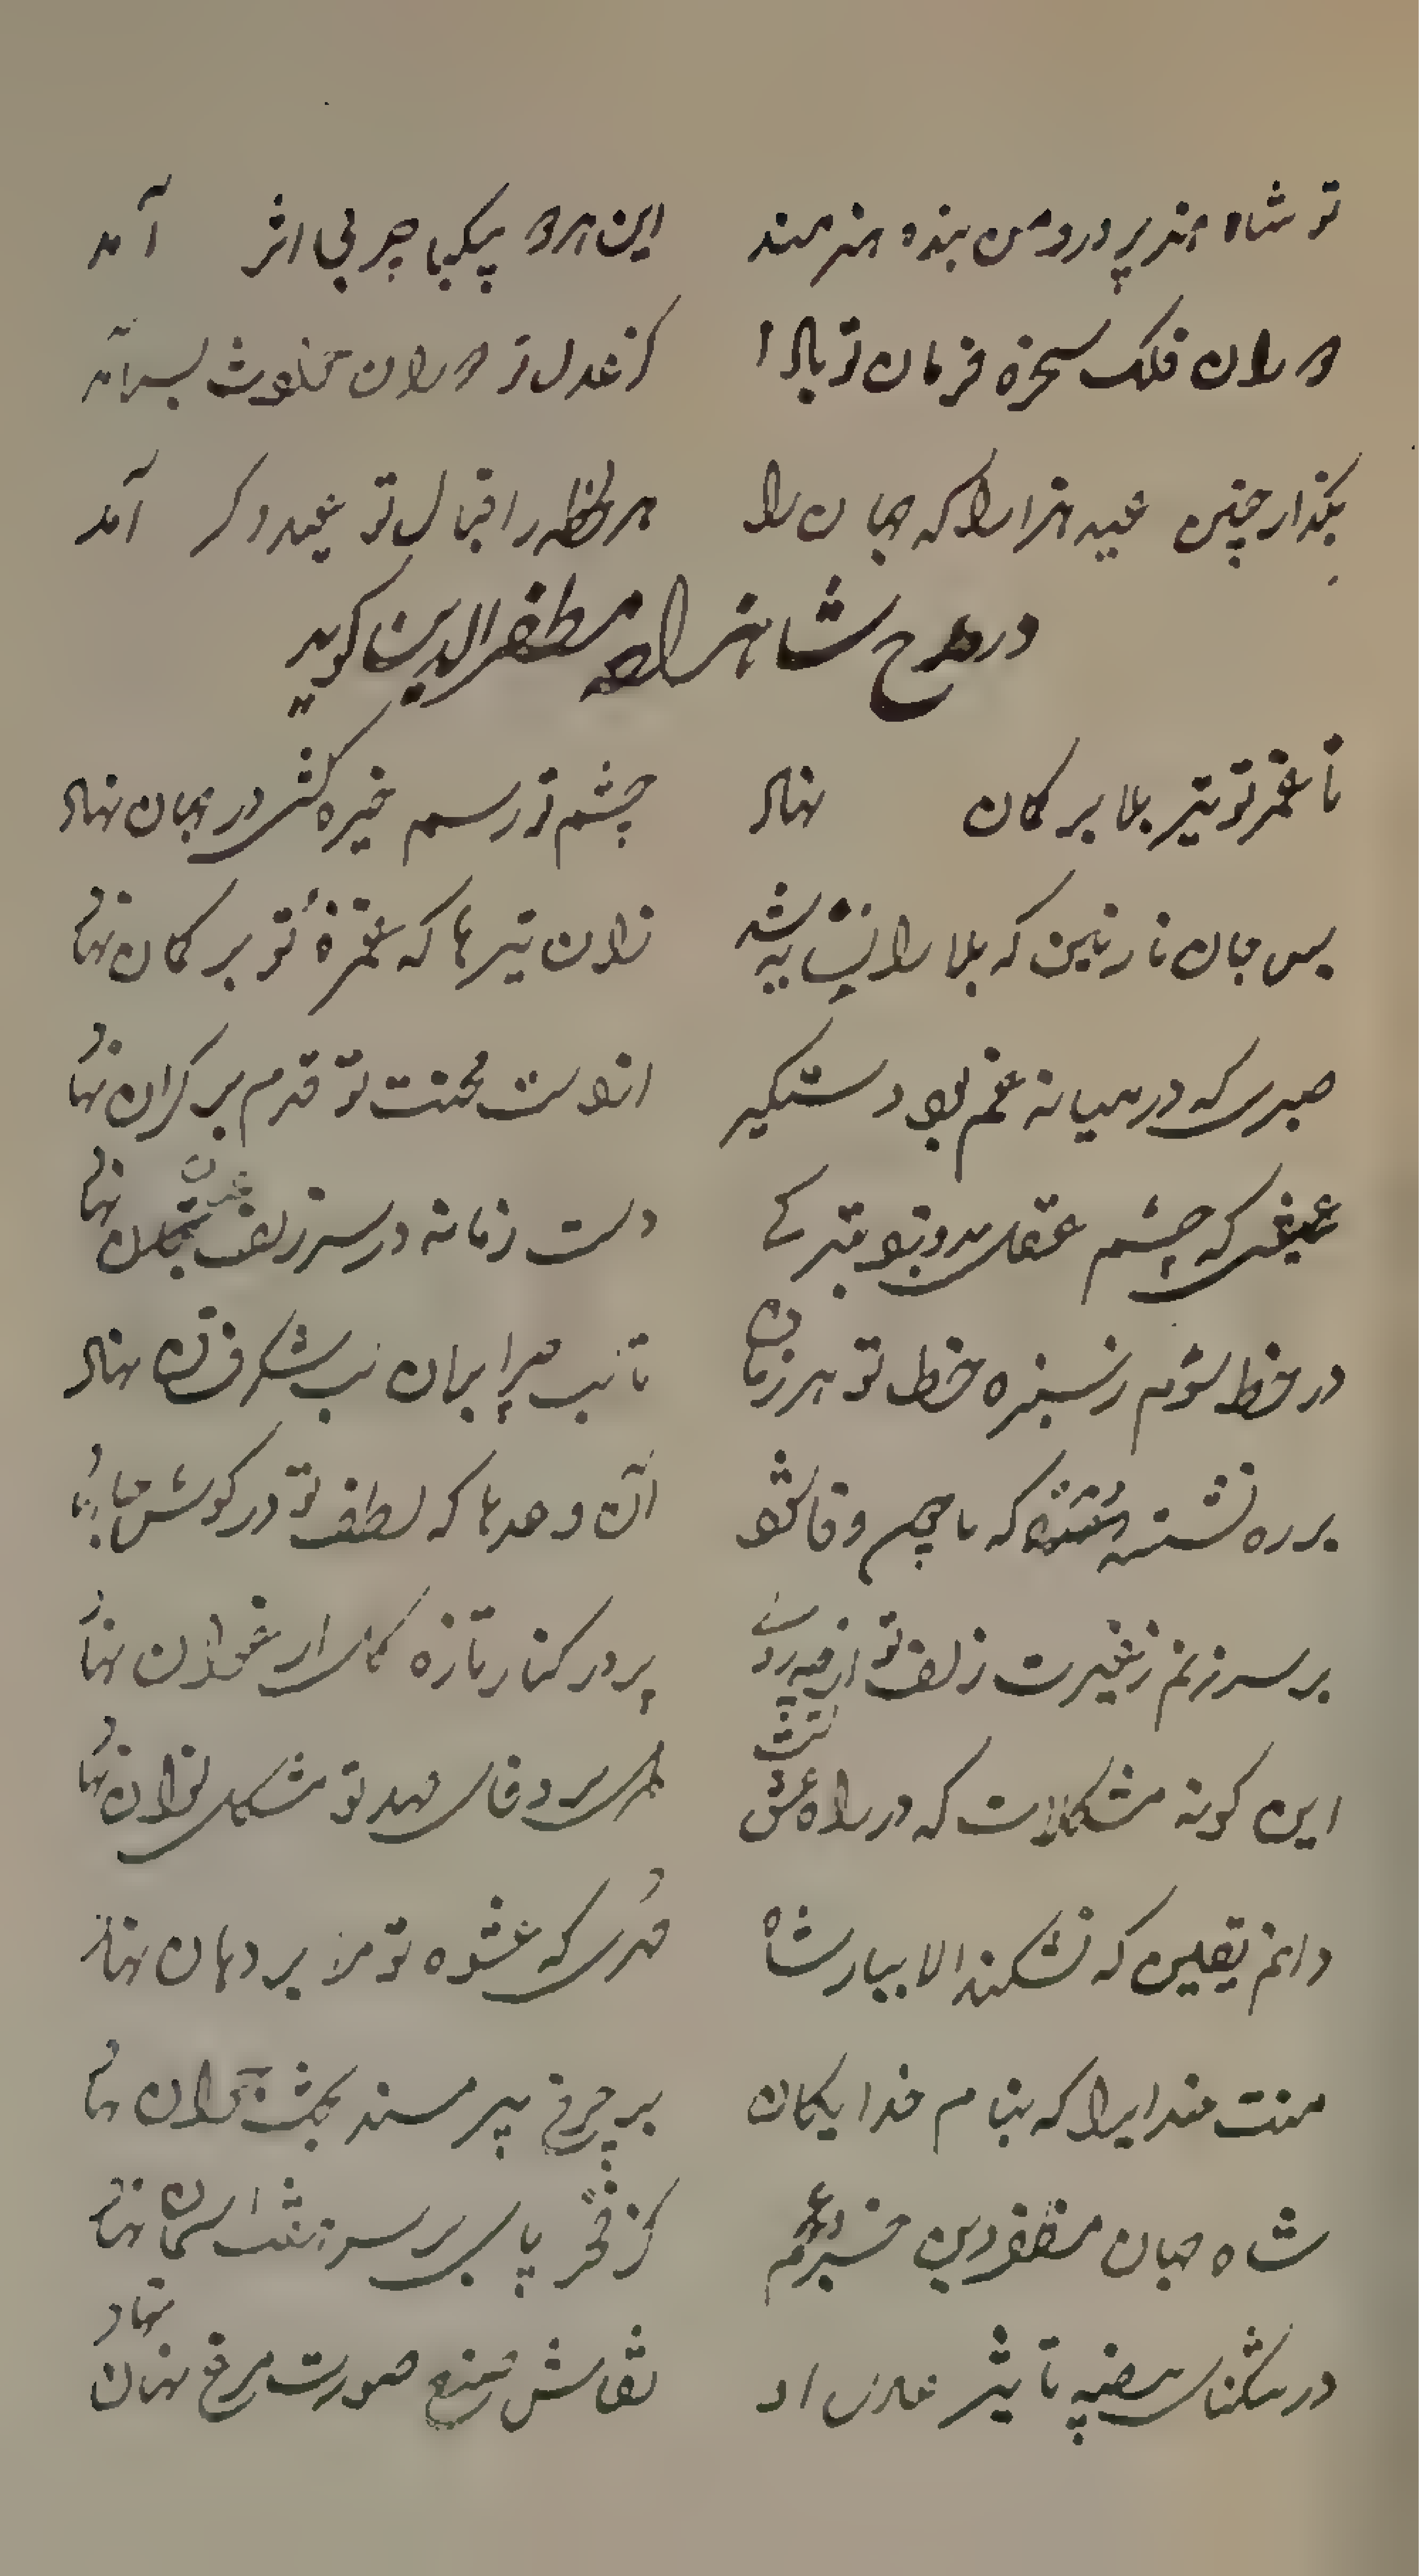 تو شاه هنر پرور و من بنده هنرمند این هر دو بیکبا چر بی اثر آمد
دوران فلک سخره فرمان تو بادا کز عدل تو دوران بسر آمد
بگذار چنین عید هزاران که جهان را هر لحظه ز اقبال تو عید دگر آمد
در مدح شاهزاده مظفرالدین گوید
تا غمزه تو تیر بلا بر کمان نهاد چشم تو رسم خیره کشی در جهان نهاد
بس جان نازنین که بلا را نشانه شد زان تیرها که غمزهٔ تو بر کمان نهاد
صبری که در میانه غم بود دستگیر از دست محنت تو قدم بر کران نهاد
عیشی که چشم عقل بدو بود تیر کی دست زمانه در سر زلف بتان نهاد
در خط شوم ز سبزه خط تو هر زمان تا لب چرا بران لب شکرفشان نهاد
بر ره نشسته که تا چون وفا شود آن وعدها که لطف تو در گوش جان نهاد
بر سر زنم ز غیرت زلف تو از چه روست پر در کنار تازه گل ارغوان نهاد
این گونه مشکلات که در راه عشق تست دل بر وفای عهد تو مشکل توان نهاد
دانم یقین که نشکند الا بیاد شاه مهری که عشوه تو مرا بر دهان نهاد
منت خدایرا که بنام خدایگان بر چرخ پیر مسند بخت جوان نهاد
شاه جهان مظفر دین خسرو عجم کز فخر پای بر سر هفت آسمان نهاد
در تنگنای بیضه تاثیر عدل او نقاش صنع صورت مرغ نهان نهاد